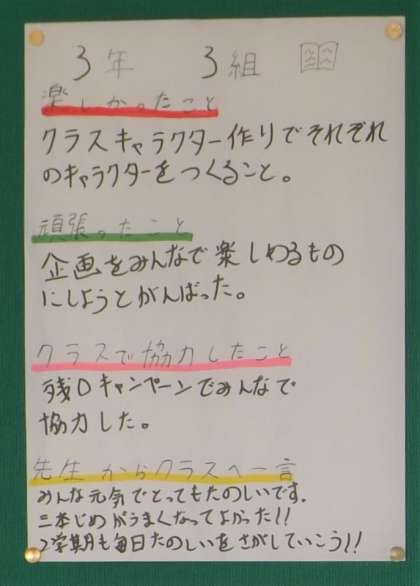 3年 3組
楽しかったこと
クラスキャラクター作りでそれぞれ
のキャラクターをつくること。
頑張ったこと
企画をみんなで楽しめるもの
にしようとがんばった。
クラスで協力したこと
残0キャンペーンでみんなで
協力した。
先生からクラスへ一言
みんな元気でとってもたのしいです.
三本じめがうまくなってよかった!!
2学期も毎日たのしいをさがしていこう!!